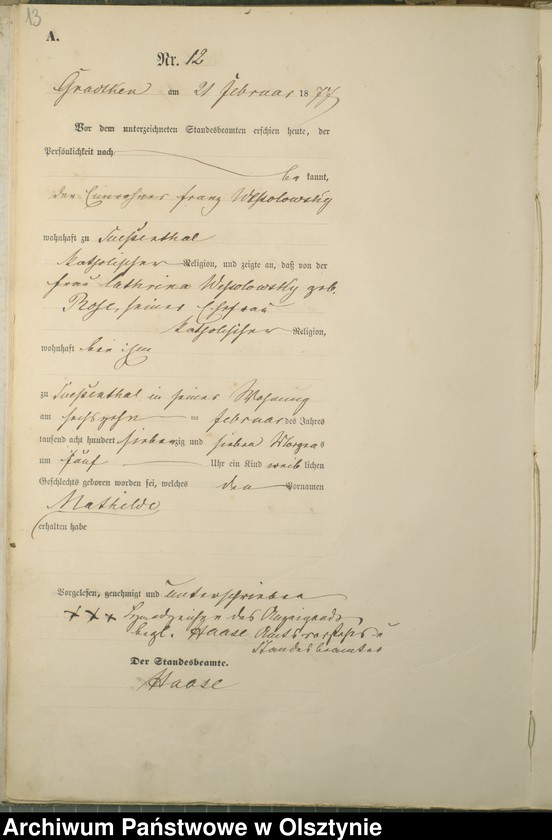 13
A.
Nr. 12
Grodtken am 21 Februar 1877
Vor dem unterzeichneten Standesbeamten erschien heute, der
Persönlichkeit nach
be kannt,
der Einwohner Franz Wessolowsky
wohnhaft zu
katholischer Religion, und zeigte an, daß von der
Frau Cathrina Wessolowsky geb.
Rose, seiner Ehefrau
katholischer Religion,
wohnhaft bei ihm
zu in seiner Wohnung
am sechszehn ten Februar des Jahres
tausend acht hundert siebenzig und sieben Morgens
um fünf Uhr ein Kind weib lichen
Geschlechts geboren worden sei, welches den Vornamen
Mathilde
erhalten habe
Vorgelesen, genehmigt und unterschrieben
+ + + Handzeichen des Anzeigenden
begl. Haase Amtsvorsteher u
Standesbeamter
Der Standesbeamte.
Haase
Archiwum Państwowe w Olsztynie